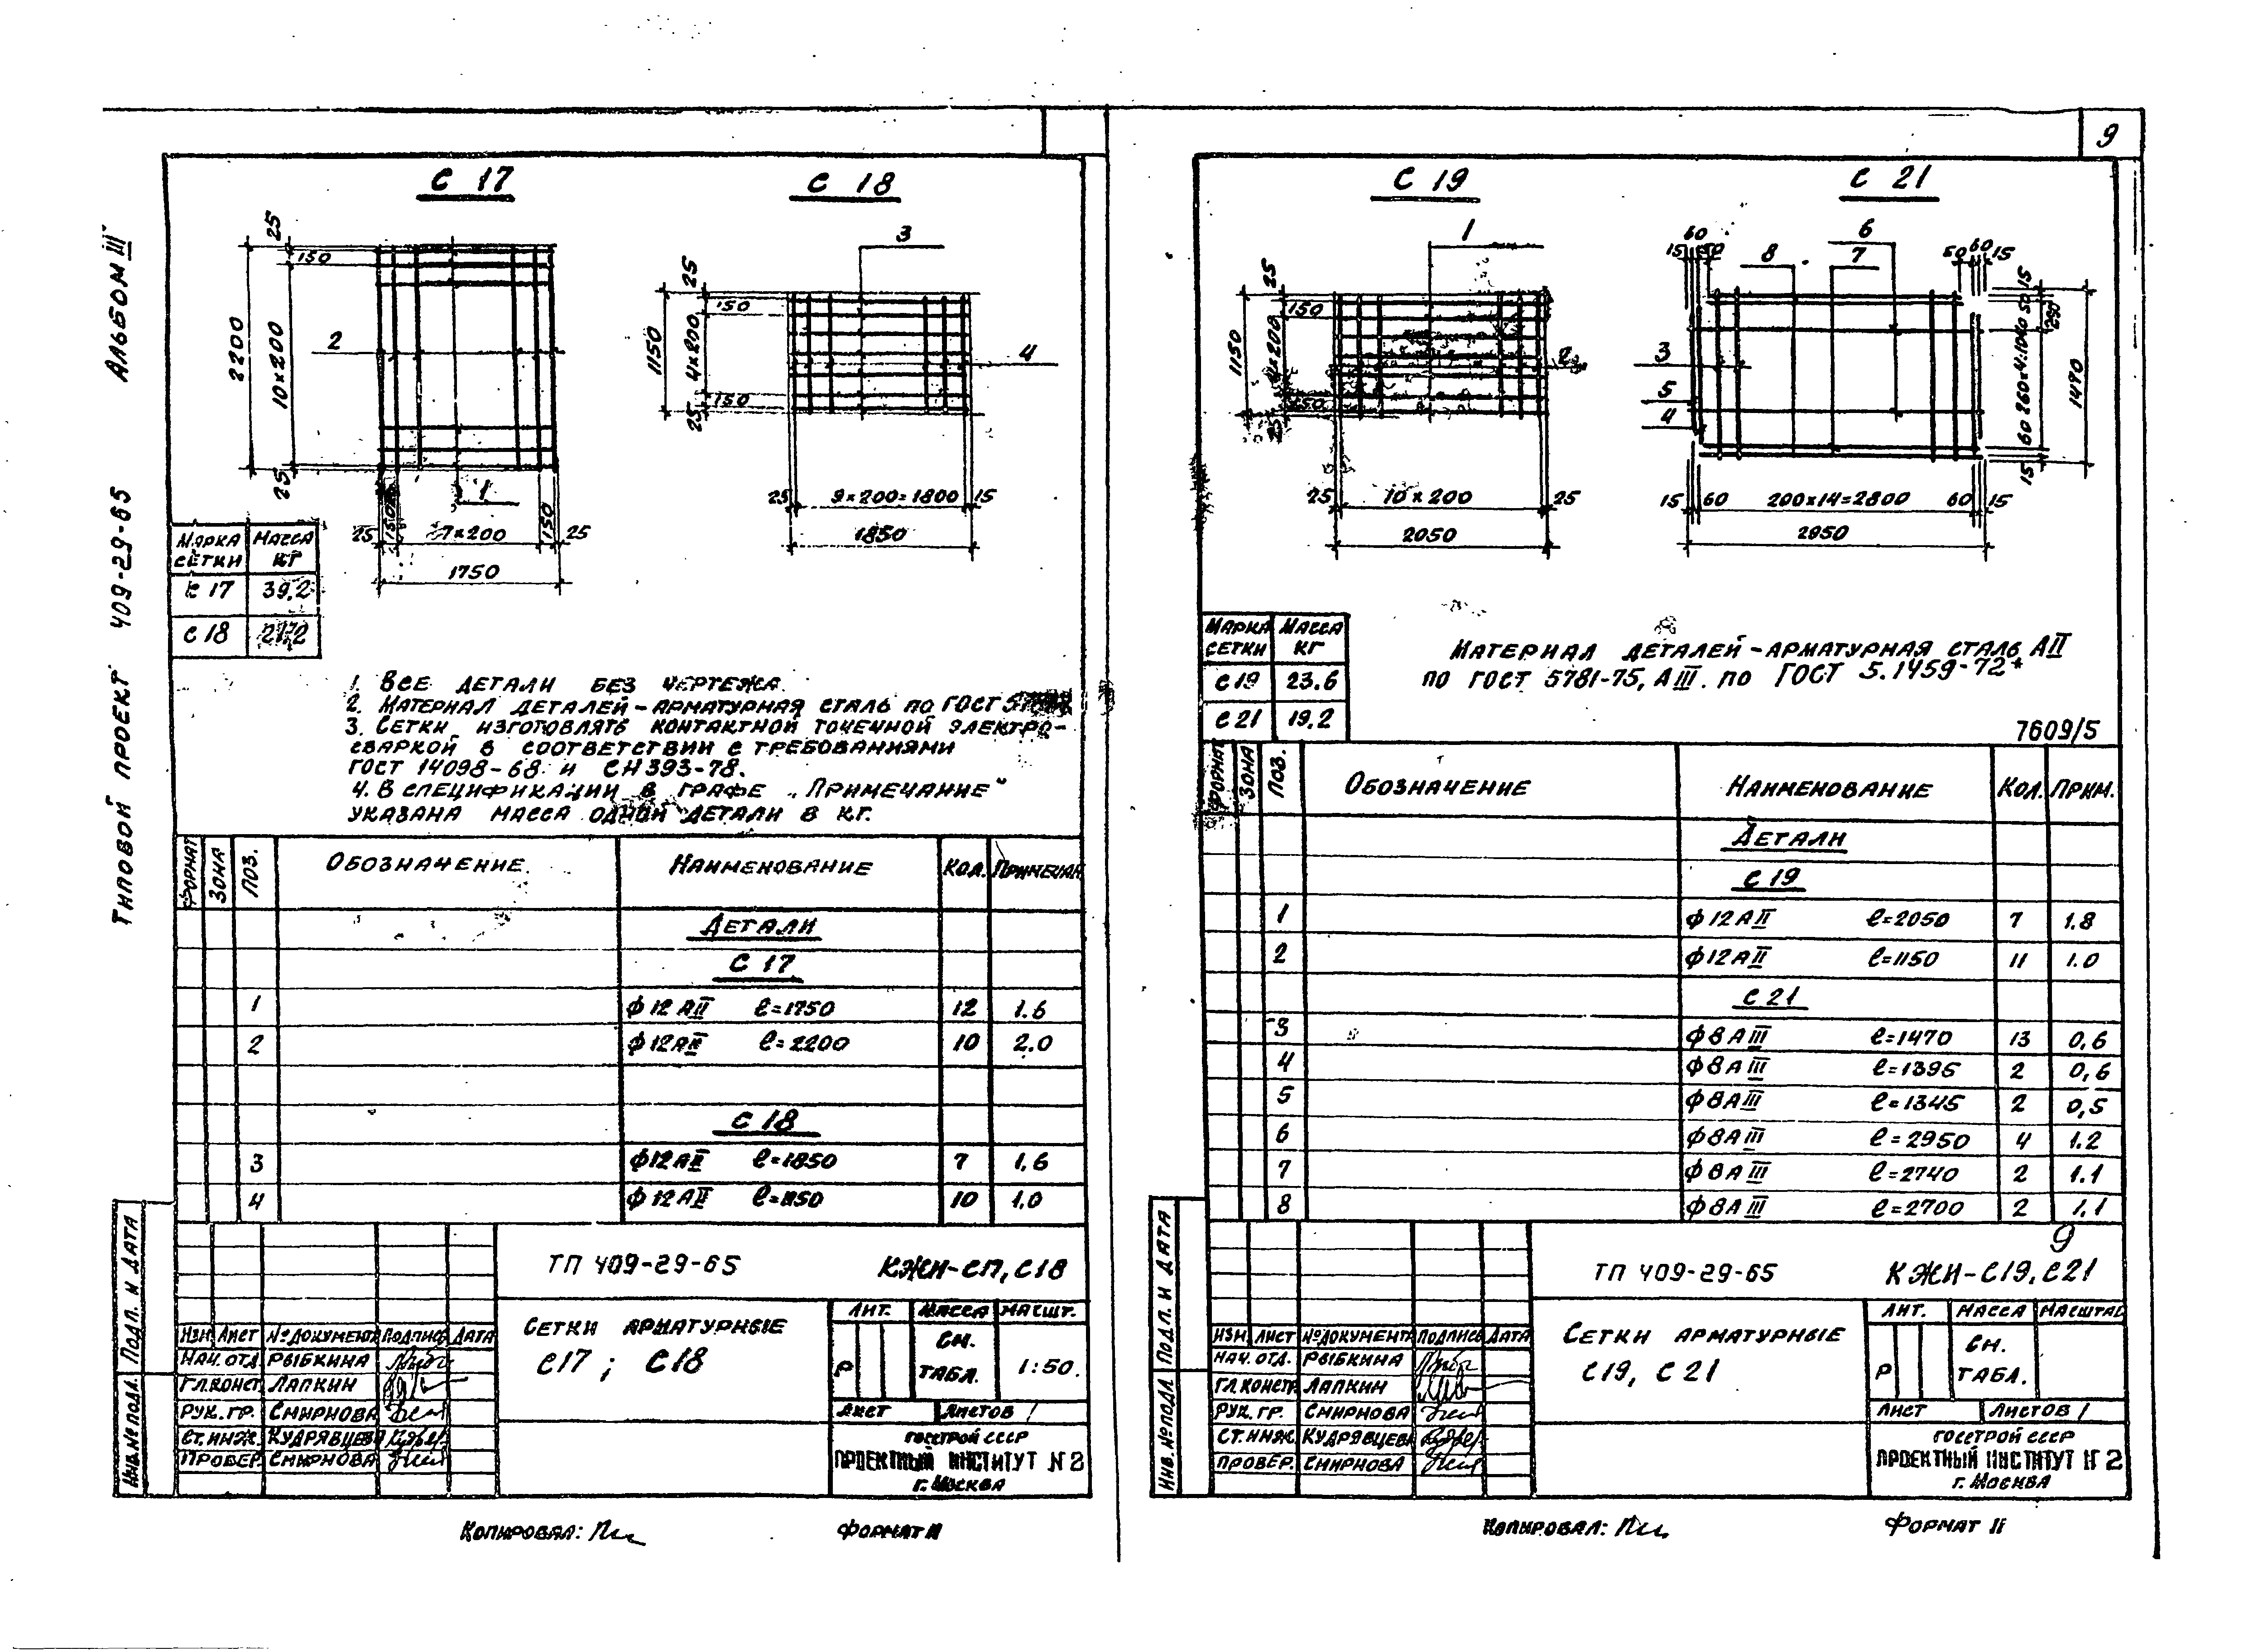 9
ТИПОВОЙ ПРОЕКТ 409-29-65 АЛЬБОМ III
С 17
С 18
25
150
2200
10×200
2
25
1
25
150
7×200
150
25
1750
3
25
150
1150
4×200
4
150
25
25
9×200=1800
15
1850
МАРКА СЕТКИ МАССА КГ
С 17 39,2
С 18
1. ВСЕ ДЕТАЛИ БЕЗ ЧЕРТЕЖА.
2. МАТЕРИАЛ ДЕТАЛЕЙ-АРМАТУРНАЯ СТАЛЬ ПО ГОСТ
3. СЕТКИ ИЗГОТОВЛЯТЬ КОНТАКТНОЙ ТОЧЕЧНОЙ ЭЛЕКТРО-
СВАРКОЙ В СООТВЕТСТВИИ С ТРЕБОВАНИЯМИ
ГОСТ 14098-68 И СН 393-78.
4. В СПЕЦИФИКАЦИИ В ГРАФЕ „ПРИМЕЧАНИЕ"
УКАЗАНА МАССА ОДНОЙ ДЕТАЛИ В КГ.
ФОРМАТ ЗОНА ПОЗ. ОБОЗНАЧЕНИЕ НАИМЕНОВАНИЕ КОЛ. ПРИМЕЧАН
ДЕТАЛИ
С 17
1 ф12АII ℓ=1750 12 1.6
2 ф12АII ℓ=2200 10 2.0
С 18
3 ф12АII ℓ=1850 7 1,6
4 ф12АII ℓ=1150 10 1.0
ТП 409-29-65 КЖИ-С17, С18
СЕТКИ АРМАТУРНЫЕ
С17 ; С18
ЛИТ. МАССА МАСШТ.
Р СМ. ТАБЛ. 1:50.
ЛИСТ ЛИСТОВ 1
ГОССТРОЙ СССР
ПРОЕКТНЫЙ ИНСТИТУТ N 2
Г. МОСКВА
ИЗМ ЛИСТ №ДОКУМЕНТА ПОДПИСЬ ДАТА
НАЧ. ОТД. РЫБКИНА
ГЛ.КОНСТ. ЛАПКИН
РУК. ГР. СМИРНОВА
СТ.ИНЖ. КУДРЯВЦЕВА
ПРОВЕР. СМИРНОВА
ИНВ.№ ПОДЛ. ПОДП. И ДАТА
КОПИРОВАЛ:
ФОРМАТ 11
С 19
С 21
1
25
150
1150
4×200
2
150
25
25
10×200
25
2050
60
15
50
8
6
7
50
60
15
3
5
4
15
50
290
260×4=1040
1470
60
15
15
60
200×14=2800
60
15
2950
МАРКА СЕТКИ МАССА КГ
С19 23.6
С21 19,2
МАТЕРИАЛ ДЕТАЛЕЙ-АРМАТУРНАЯ СТАЛЬ АII
ПО ГОСТ 5781-75, АIII. ПО ГОСТ 5.1459-72*
7609/5
ФОРМАТ ЗОНА ПОЗ. ОБОЗНАЧЕНИЕ НАИМЕНОВАНИЕ КОЛ. ПРИМ.
ДЕТАЛИ
С 19
1 ф12АII ℓ=2050 7 1.8
2 ф12АII ℓ=1150 11 1.0
С 21
3 ф8АIII ℓ=1470 13 0,6
4 ф8АIII ℓ=1395 2 0,6
5 ф8АIII ℓ=1345 2 0,5
6 ф8АIII ℓ=2950 4 1.2
7 ф8АIII ℓ=2740 2 1.1
8 ф8АIII ℓ=2700 2 1,1
9
ТП 409-29-65 КЖИ-С19, С21
СЕТКИ АРМАТУРНЫЕ
С19, С 21
ЛИТ. МАССА МАСШТАБ
Р СМ. ТАБЛ.
ЛИСТ ЛИСТОВ 1
ГОССТРОЙ СССР
ПРОЕКТНЫЙ ИНСТИТУТ N 2
Г. МОСКВА
ИЗМ. ЛИСТ №ДОКУМЕНТА ПОДПИСЬ ДАТА
НАЧ. ОТД. РЫБКИНА
ГЛ.КОНСТР. ЛАПКИН
РУК. ГР. СМИРНОВА
СТ.ИНЖ. КУДРЯВЦЕВА
ПРОВЕР. СМИРНОВА
ИНВ.№ ПОДЛ ПОДП. И ДАТА
КОПИРОВАЛ:
ФОРМАТ 11